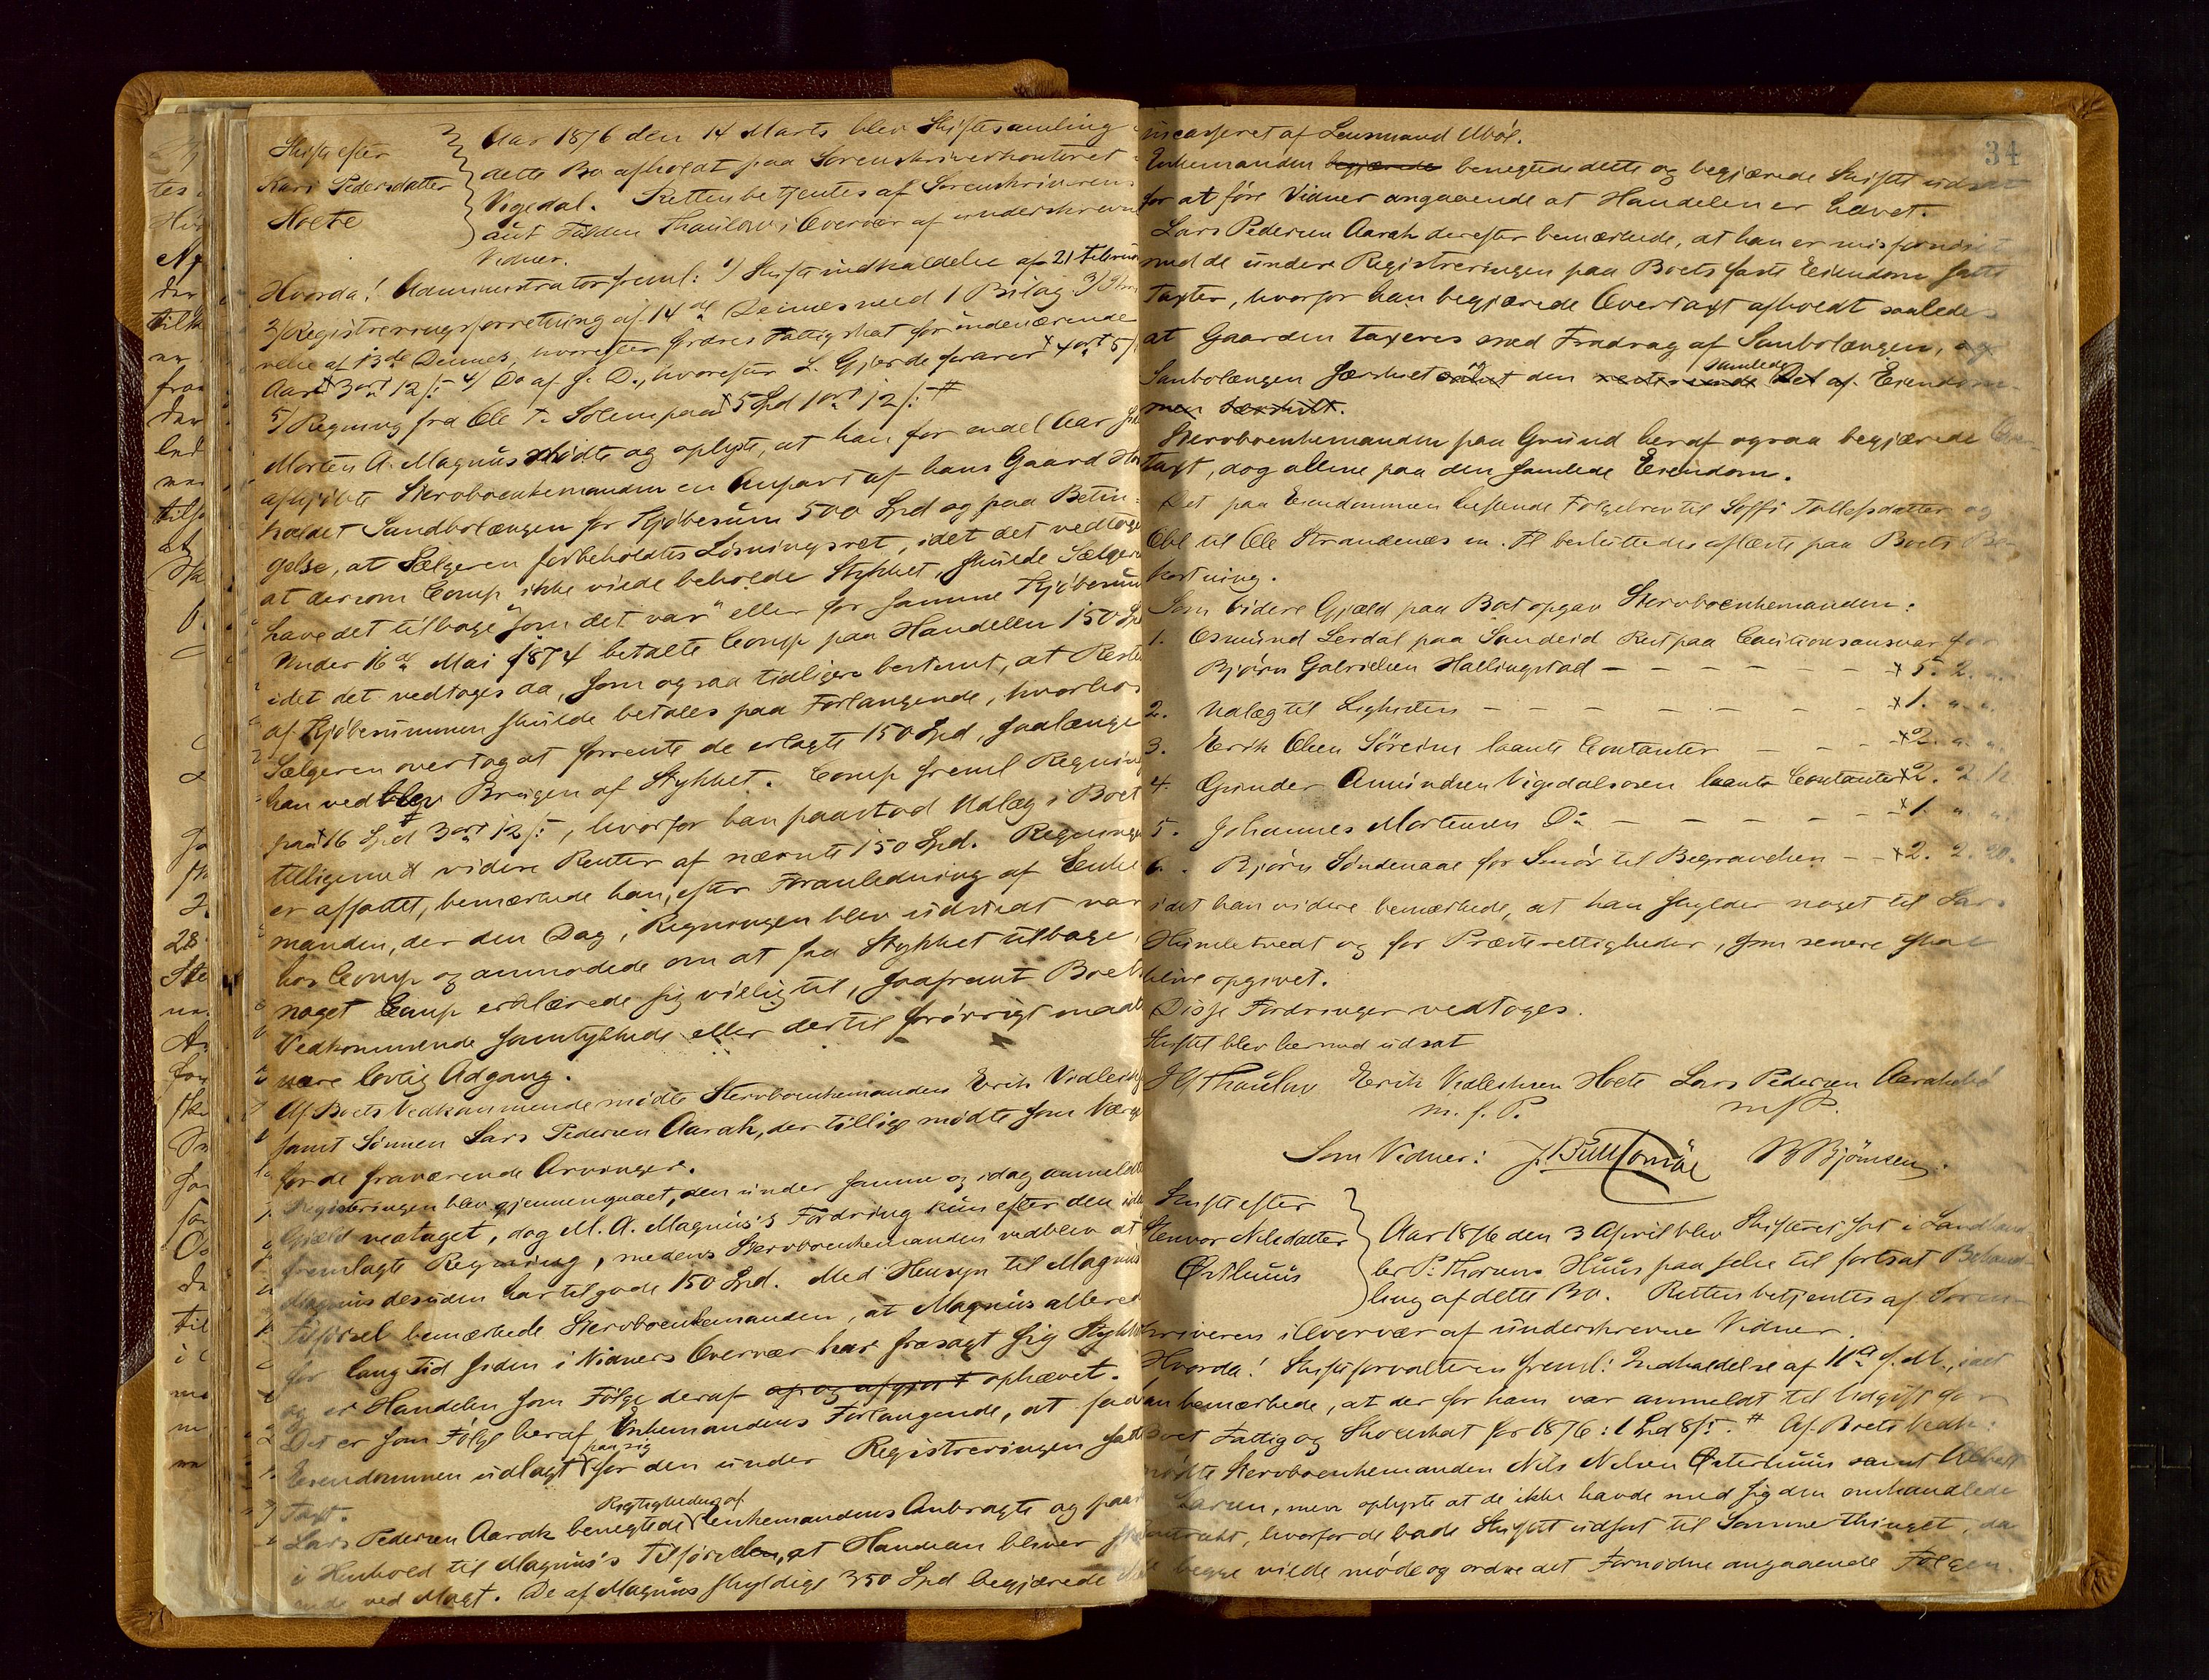 Skifte efter
Kari Pedersdatter
Hoete
Aar 1876 den 14 Marts blev Skiftesamling i
dette Bo afholdt paa Sorenskriverkontoret i
Vigedal. Retten betjentes af Sorenskriverens
Fuldm Thaulow i Overvær af underskrevne
Vidner.
Hvorda! Administrator freml: 1) Skifteindkaldelse af 21 Februar
2) Registreringsforretning af 14de Dennes med 1 Bilag 3)
velse af 13de Dennes, hvorefter fordres Fattigskat for indeværende
Aar 3 ort 12 s: 4) Do af J. D., hvorefter L. Gjerde fordrer 4 ort 5 s
5) Regning fra Ole T. Solem paa 5 Spd 1 ort 12 s: #
Morten A. Magnus mødte og oplyste, at han for endel Aar
afkjøbte Stervboenkemanden en Anpart af hans Gaard
kaldet Sandbolængen for Kjøbesum 500 Spd og paa Betin-
gelse, at Sælgeren forbeholdtes Løsningsret, idet det vedtoges
at dersom Comp ikke vilde beholde Stykket, skulde Sælgeren
have det tilbage "som det var" eller for samme Kjøbesum
Under 16de Mai 1874 betalte Comp paa Handelen 150 Spd
idet det vedtoges da, som ogsaa tidligere bestemt, at Resten
af Kjøbesummen skulde betales paa Forlangende, hvorhos
Sælgeren overtog at forrente de erlagte 150 Spd, saalænge
han vedblev Brugen af Stykket. Comp freml Regning
paa 16 Spd 3 ort 12 s:, hvorfor han paastod Udlæg i Boet
tilligemed videre Renter af nævnte 150 Spd. Regningen
er affattet, bemærkede han, efter Foranledning af Enke
manden, der den Dag, Regningen blev udstedt var
hos Comp og anmodede om at faa Stykket tilbage,
noget Comp erklærede sig villig til, saafremt Boets
Vedkommende samtykkede eller dertil forøvrigt maatte
være lovlig Adgang.
Af Boets Vedkommende mødte Stervboenkemanden Erik Vidleiks
samt Sønnen Lars Pedersen Aarak, der tillige mødte som Værge
for de fraværende Arvinger.
Registreringen blev gjennemgaaet, den under samme og idag anmeldte
Gjæld vedtaget, dog M. A. Magnus's Fordring kun efter den idag
fremlagte Regning, medens Stervboenkemanden vedblev at
Magnus desuden har tilgode 150 Spd. Med Hensyn til Magnus
Tilførsel bemærkede Stervboenkemanden, at Magnus allerede
for lang Tid siden i Vidners Overvær har frasagt sig Stykket
og er Handelen som Følge deraf op og afgjort ophævet.
Det er som Følge heraf Enkemandens Forlangende, at faa
Eiendommen udlagt paa sig for den under Registreringen satte
Taxt.
Lars Pedersen Aarak benegtede Rigtigheden af Enkemandens Anbragte og paastod
i Henhold til Magnus's Tilførsel, at Handelen bliver
ende ved Magt. De af Magnus skyldige 350 Spd begjærede
34
incasseret af Lensmand Abøl.
Enkemanden begjærede benegtede dette og begjærede Skiftet udsat
for at føre Vidner angaaende at Handelen er hævet.
Lars Pedersen Aarak derefter bemærkede, at han er misfornøiet
med de under Registreringen paa Boets faste Eiendom satte
Taxter, hvorfor han begjærede Overtaxt afholdt saaledes
at Gaarden taxeres med Fradrag af Sanbolængen, og
Sanbolængen særskilt samt den samlede Del af Eiendom-
men særskilt.
Stervboenkemanden paa Grund heraf ogsaa begjærede Over-
taxt, dog alene paa den samlede Eiendom.
Det paa Eiendommen heftende Følgebrev til Soffi Tollefsdatter og
Obl til Ole Strandenæs m. Fl besluttedes aflæste paa Boets Be-
kostning.
Som videre Gjæld paa Boet opgav Stervboenkemanden:
1. Osmund Lerdal paa Sandeid Rest paa Cautionsansvar for
Bjørn Gabrielsen Hallingstad – – – – – – x 5. 2. "
2. Udlæg til Ligkisten – – – – – – – x 1. " "
3. Erik Olsen Søreim laante Contanter – – – x 2. " "
4. Gunder Amundsen Vigedalsosen laante Contanter x 2. 2. 12
5. Johannes Mortensen Do – – – – – – x 1. " "
6. Bjørn Søndenaae for Smør til Begravelsen – – x 2. 2. 20.
idet han videre bemærkede, at han skylder noget til Lars
Humletvedt og for Præsterettigheder, som senere skal
blive opgivet.
Disse Fordringer vedtoges.
Skiftet blev hermed udsat
Thaulow Erik Vidleiksen Hoete Lars Pedersen Aarak
m. f. P. m f P.
Som Vidner: B Bjørnsen.
Skifte efter
Stenvor Nilsdatter
Østhuus
Aar 1876 den 3 April blev Skifteret sat i Landhand-
ler P. Thorsens Huus paa Ølen til fortsat Behand-
ling af dette Bo. Retten betjentes af Soren-
skriveren i Overvær af underskrevne Vidner.
Hvorda! Skifteforvalteren freml: Indkaldelse af 11te f. M., idet
han bemærkede, at der for ham var anmeldt til Udgift for
Boet Fattig og Skoleskat for 1876: 1 Spd 8 s: # Af Boets Vedk:
mødte Stervboenkemanden Nils Nilsen Østerhuus samt Albert
Larsen, men oplyste at de ikke havde med sig den omhandlede
Contrakt, hvorfor de bade Skiftet udsat til Sommerthinget, da
de begge vilde møde og ordne det Fornødne angaaende Følgen.